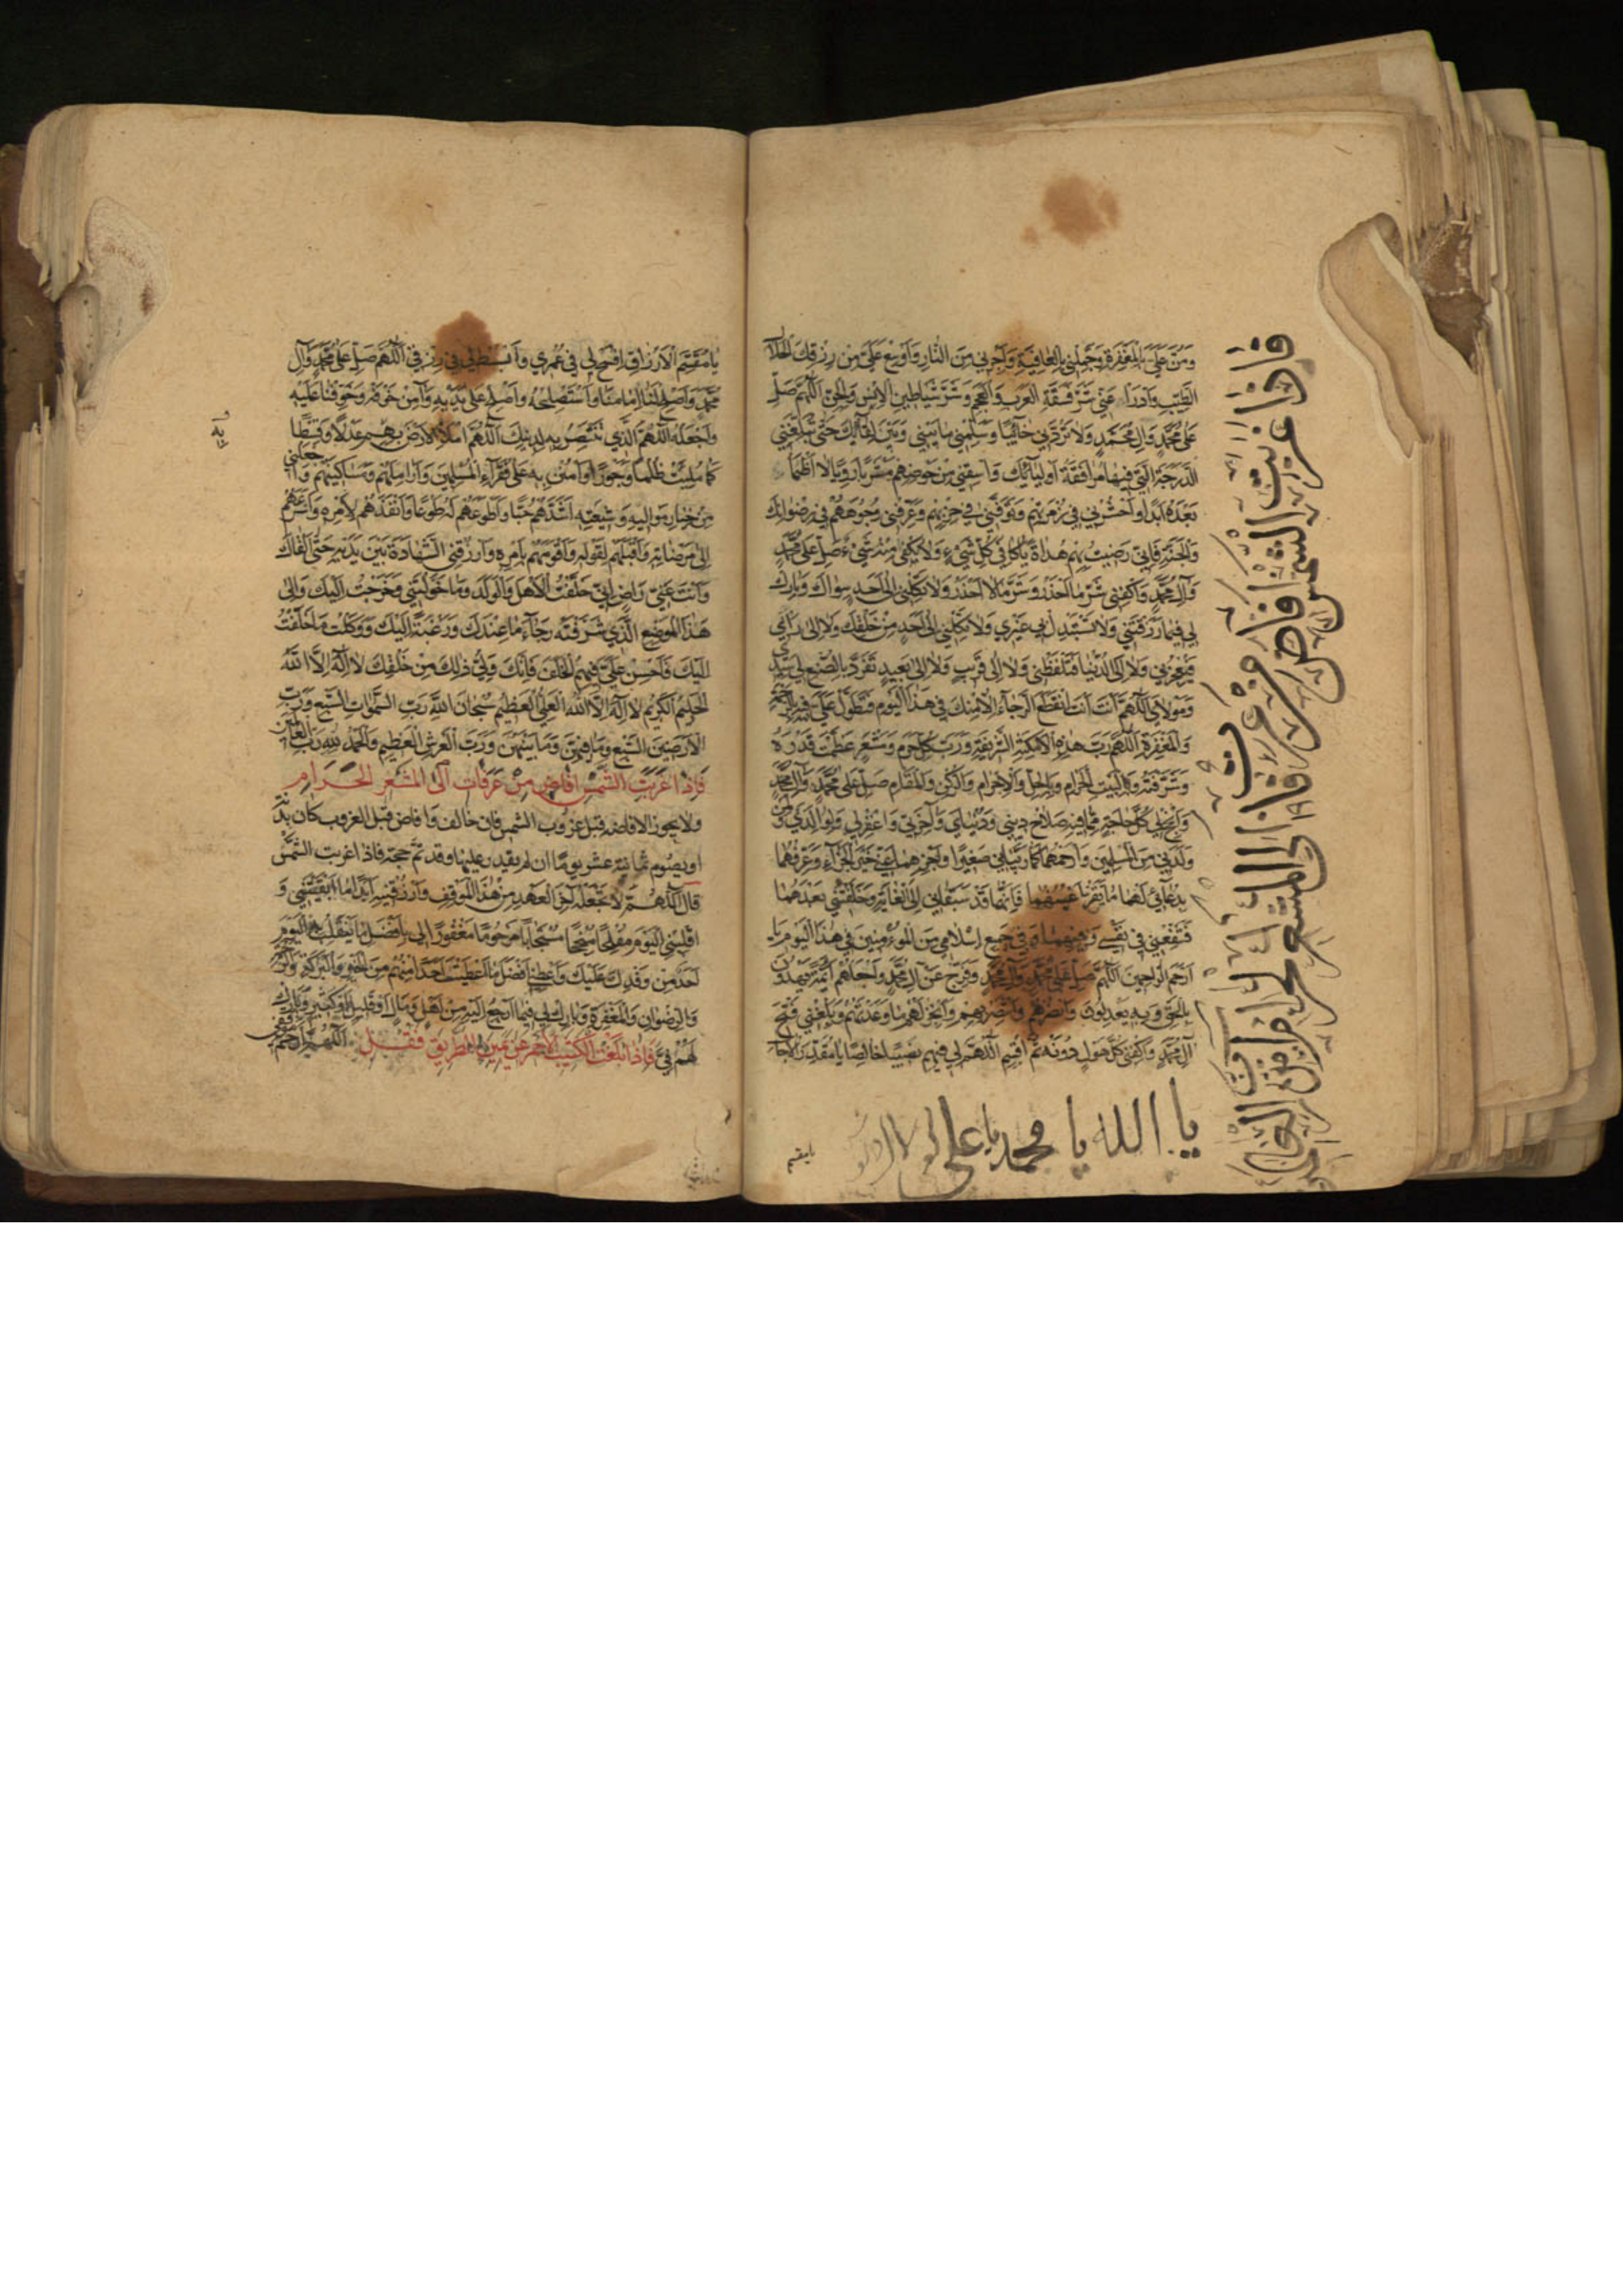 وَمُنَّ عَلَيَّ بِالْمَغْفِرَةِ وَجَمِّلْنِي بِالْعَافِيَةِ وَآجِرْنِي مِنَ النَّارِ وَأَوْسِعْ عَلَيَّ مِنْ رِزْقِكَ الْحَلَالِ
الطَّيِّبِ وَادْرَأْ عَنِّي شَرَّ فَسَقَةِ الْعَرَبِ وَالْعَجَمِ وَشَرَّ شَيَاطِينِ الْإِنْسِ وَالْجِنِّ اَللّٰهُمَّ صَلِّ
عَلَى مُحَمَّدٍ وَآلِ مُحَمَّدٍ وَلَا تَرُدَّنِي خَائِبًا وَسَلِّمْنِي مَا بَيْنِي وَبَيْنَ لِقَائِكَ حَتَّى تُبَلِّغَنِي
الدَّرَجَةَ الَّتِي فِيهَا مُرَافَقَةُ أَوْلِيَائِكَ وَاسْقِنِي مِنْ حَوْضِهِمْ مَشْرَبًا رَوِيًّا لَا أَظْمَأُ
بَعْدَهُ أَبَدًا وَاحْشُرْنِي فِي زُمْرَتِهِمْ وَتَوَفَّنِي فِي حِزْبِهِمْ وَعَرِّفْنِي وُجُوهَهُمْ فِي رِضْوَانِكَ
وَالْجَنَّةِ فَإِنِّي رَضِيتُ بِهِمْ هُدَاةً يَا كَافِيَ كُلِّ شَيْءٍ وَلَا يَكْفِي مِنْهُ شَيْءٌ صَلِّ عَلَى مُحَمَّدٍ
وَآلِ مُحَمَّدٍ وَاكْفِنِي شَرَّ مَا أَحْذَرُ وَشَرَّ مَا لَا أَحْذَرُ وَلَا تَكِلْنِي إِلَى أَحَدٍ سِوَاكَ وَبَارِكْ
لِي فِيمَا رَزَقْتَنِي وَلَا تَسْتَبْدِلْ بِي غَيْرِي وَلَا تَكِلْنِي إِلَى أَحَدٍ مِنْ خَلْقِكَ وَلَا إِلَى رَأْيِي
فَيُعْجِزَنِي وَلَا إِلَى الدُّنْيَا فَتَلْفِظَنِي وَلَا إِلَى قَرِيبٍ وَلَا إِلَى بَعِيدٍ تَفَرَّدْ بِالصُّنْعِ لِي يَا سَيِّدِي
وَمَوْلَايَ اَللّٰهُمَّ أَنْتَ أَنْتَ انْقَطَعَ الرَّجَاءُ إِلَّا مِنْكَ فِي هَذَا الْيَوْمِ فَتَطَوَّلْ عَلَيَّ فِيهِ بِالرَّحْمَةِ
وَالْمَغْفِرَةِ اَللّٰهُمَّ رَبَّ هَذِهِ الْأَمْكِنَةِ الشَّرِيفَةِ وَرَبَّ كُلِّ حَرَمٍ وَمَشْعَرٍ عَظَّمْتَ قَدْرَهُ
وَشَرَّفْتَهُ وَبِالْبَيْتِ الْحَرَامِ وَبِالْحِلِّ وَالْإِحْرَامِ وَالرُّكْنِ وَالْمَقَامِ صَلِّ عَلَى مُحَمَّدٍ وَآلِ مُحَمَّدٍ
وَأَنْجِحْ لِي كُلَّ حَاجَةٍ مِمَّا فِيهِ صَلَاحُ دِينِي وَدُنْيَايَ وَآخِرَتِي وَاغْفِرْ لِي وَلِوَالِدَيَّ وَمَنْ
وَلَدَنِي مِنَ الْمُسْلِمِينَ وَارْحَمْهُمَا كَمَا رَبَّيَانِي صَغِيرًا وَاجْزِهِمَا عَنِّي خَيْرَ الْجَزَاءِ وَعَرِّفْهُمَا
بِدُعَائِي لَهُمَا مَا يُقِرُّ أَعْيُنَهُمَا فَإِنَّهُمَا قَدْ سَبَقَانِي إِلَى الْغَايَةِ وَخَلَّفْتَنِي بَعْدَهُمَا
فَشَفِّعْنِي فِي نَفْسِي وَفِيهِمَا وَفِي جَمِيعِ أَسْلَافِي مِنَ الْمُؤْمِنِينَ فِي هَذَا الْيَوْمِ يَا
أَرْحَمَ الرَّاحِمِينَ اَللّٰهُمَّ صَلِّ عَلَى مُحَمَّدٍ وَآلِ مُحَمَّدٍ وَفَرِّجْ عَنْ آلِ مُحَمَّدٍ وَاجْعَلْهُمْ أَئِمَّةً يَهْدُونَ
بِالْحَقِّ وَبِهِ يَعْدِلُونَ وَانْصُرْهُمْ وَانْتَصِرْ بِهِمْ وَأَنْجِزْ لَهُمْ مَا وَعَدْتَهُمْ وَبَلِّغْنِي فَتْحَ
آلِ مُحَمَّدٍ وَاكْفِنِي كُلَّ هَوْلٍ دُونَهُ ثُمَّ اقْسِمِ اللّٰهُمَّ لِي فِيهِمْ نَصِيبًا خَالِصًا يَا مُقَدِّرَ الْآجَالِ
يا الله يا محمد يا علي
يا مقسم
فاذا غربت الشمس افاض من عرفات
فاذا الى المشعر الحرام
يَا مُقَسِّمَ الْأَرْزَاقِ افْسَحْ لِي فِي عُمْرِي وَابْسُطْ لِي فِي رِزْقِي اَللّٰهُمَّ صَلِّ عَلَى مُحَمَّدٍ وَآلِ
مُحَمَّدٍ وَأَصْلِحْ لَنَا إِمَامَنَا وَاسْتَصْلِحْهُ وَأَصْلِحْ عَلَى يَدَيْهِ وَآمِنْ خَوْفَهُ وَخَوْفَنَا عَلَيْهِ
وَاجْعَلْهُ اللّٰهُمَّ الَّذِي تَنْتَصِرُ بِهِ لِدِينِكَ اَللّٰهُمَّ امْلَأِ الْأَرْضَ بِهِ عَدْلًا وَقِسْطًا
كَمَا مُلِئَتْ ظُلْمًا وَجَوْرًا وَامْنُنْ بِهِ عَلَى فُقَرَاءِ الْمُسْلِمِينَ وَأَرَامِلِهِمْ وَمَسَاكِينِهِمْ وَاجْعَلْنِي
مِنْ خِيَارِ مَوَالِيهِ وَشِيعَتِهِ أَشَدَّهُمْ حُبًّا وَأَطْوَعَهُمْ لَهُ طَوْعًا وَأَنْفَذَهُمْ لِأَمْرِهِ وَأَسْرَعَهُمْ
إِلَى مَرْضَاتِهِ وَأَقْبَلَهُمْ لِقَوْلِهِ وَأَقْوَمَهُمْ بِأَمْرِهِ وَارْزُقْنِي الشَّهَادَةَ بَيْنَ يَدَيْهِ حَتَّى أَلْقَاكَ
وَأَنْتَ عَنِّي رَاضٍ إِنِّي خَلَّفْتُ الْأَهْلَ وَالْوَلَدَ وَمَا خَوَّلْتَنِي وَخَرَجْتُ إِلَيْكَ وَإِلَى
هَذَا الْمَوْضِعِ الَّذِي شَرَّفْتَهُ رَجَاءَ مَا عِنْدَكَ وَرَغْبَةً إِلَيْكَ وَوَكَلْتُ مَا خَلَّفْتُ
إِلَيْكَ فَأَحْسِنْ عَلَيَّ فِيهِمُ الْخَلَفَ فَإِنَّكَ وَلِيُّ ذَلِكَ مِنْ خَلْقِكَ لَا إِلٰهَ إِلَّا اللّٰهُ
الْحَلِيمُ الْكَرِيمُ لَا إِلٰهَ إِلَّا اللّٰهُ الْعَلِيُّ الْعَظِيمُ سُبْحَانَ اللّٰهِ رَبِّ السَّمٰوَاتِ السَّبْعِ وَرَبِّ
الْأَرَضِينَ السَّبْعِ وَمَا فِيهِنَّ وَمَا بَيْنَهُنَّ وَرَبِّ الْعَرْشِ الْعَظِيمِ وَالْحَمْدُ لِلّٰهِ رَبِّ الْعَالَمِينَ
فَإِذَا غَرَبَتِ الشَّمْسُ أَفَاضَ مِنْ عَرَفَاتٍ إِلَى الْمَشْعَرِ الْحَرَامِ
ولا يجوز الافاضة قبل غروب الشمس فان خالف وافاض قبل الغروب كان بدنة
او يصوم ثمانية عشر يوما ان لم يقدر عليها وقد تم حجه فاذا غربت الشمس
قال اَللّٰهُمَّ لَا تَجْعَلْهُ آخِرَ الْعَهْدِ مِنْ هَذَا الْمَوْقِفِ وَارْزُقْنِيهِ أَبَدًا مَا أَبْقَيْتَنِي وَ
اقْلِبْنِي الْيَوْمَ مُفْلِحًا مُنْجِحًا مُسْتَجَابًا مَرْحُومًا مَغْفُورًا لِي بِأَفْضَلِ مَا يَنْقَلِبُ بِهِ الْيَوْمَ
أَحَدٌ مِنْ وَفْدِكَ عَلَيْكَ وَأَعْطِنِي أَفْضَلَ مَا أَعْطَيْتَ أَحَدًا مِنْهُمْ مِنَ الْخَيْرِ وَالْبَرَكَةِ وَالرَّحْمَةِ
وَالرِّضْوَانِ وَالْمَغْفِرَةِ وَبَارِكْ لِي فِيمَا أَرْجِعُ إِلَيْهِ مِنْ أَهْلٍ وَمَالٍ أَوْ قَلِيلٍ أَوْ كَثِيرٍ وَبَارِكْ
لَهُمْ فِيَّ فَإِذَا بَلَغْتَ الْكَثِيبَ الْأَحْمَرَ عَنْ يَمِينِ الطَّرِيقِ فَقُلْ اَللّٰهُمَّ ارْحَمْ مَوْقِفِي